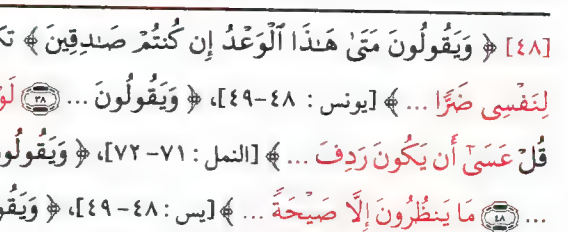 [٤٨] ﴿ وَيَقُولُونَ مَتَىٰ هَـٰذَا ٱلْوَعْدُ إِن كُنتُمْ صَـٰدِقِينَ ﴾
لِنَفْسِى ضَرًّا ... ﴾ [يونس : ٤٨-٤٩]، ﴿ وَيَقُولُونَ ... ٣٨ لَوْ
قُلْ عَسَىٰٓ أَن يَكُونَ رَدِفَ ... ﴾ [النمل : ٧١-٧٢]، ﴿ وَيَقُولُونَ
... ٤٨ مَا يَنظُرُونَ إِلَّا صَيْحَةً ... ﴾ [يس : ٤٨-٤٩]، ﴿